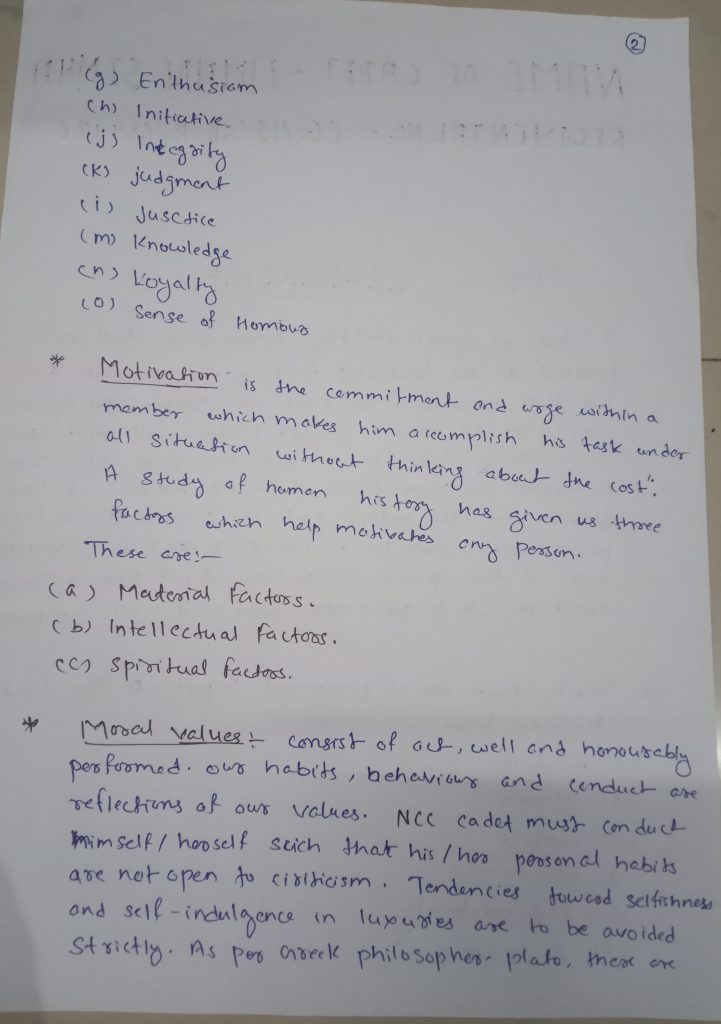 2
(g) Enthusiasm
(h) Initiative
(j) Integrity
(K) judgment
(i) Jusctice
(m) Knowledge
(n) Loyalty
(o) Sense of Homour
* Motivation is the commitment and urge within a
member which makes him accomplish his task under
all situation without thinking about the cost".
A study of human history has given us three
factors which help motivates any person.
These are:-
(a) Material Factors.
(b) Intellectual factors.
(c) Spiritual factors.
* Moral values:- consist of act, well and honourably
performed. our habits, behaviour and conduct are
reflections of our values. NCC cadet must conduct
himself/herself such that his/her personal habits
are not open to ciriticism. Tendencies toward selfishness
and self-indulgence in luxuries are to be avoided
strictly. As per Greek philosopher plato, there are